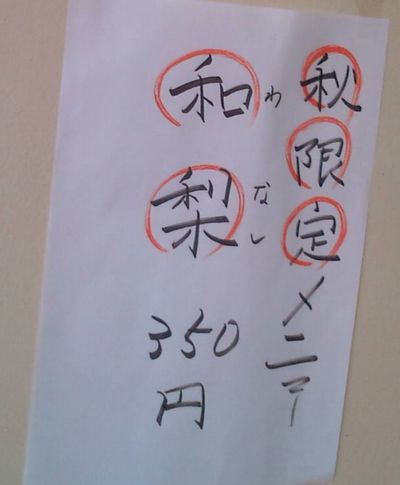 秋限定メニュー
わなし
和梨
350
円